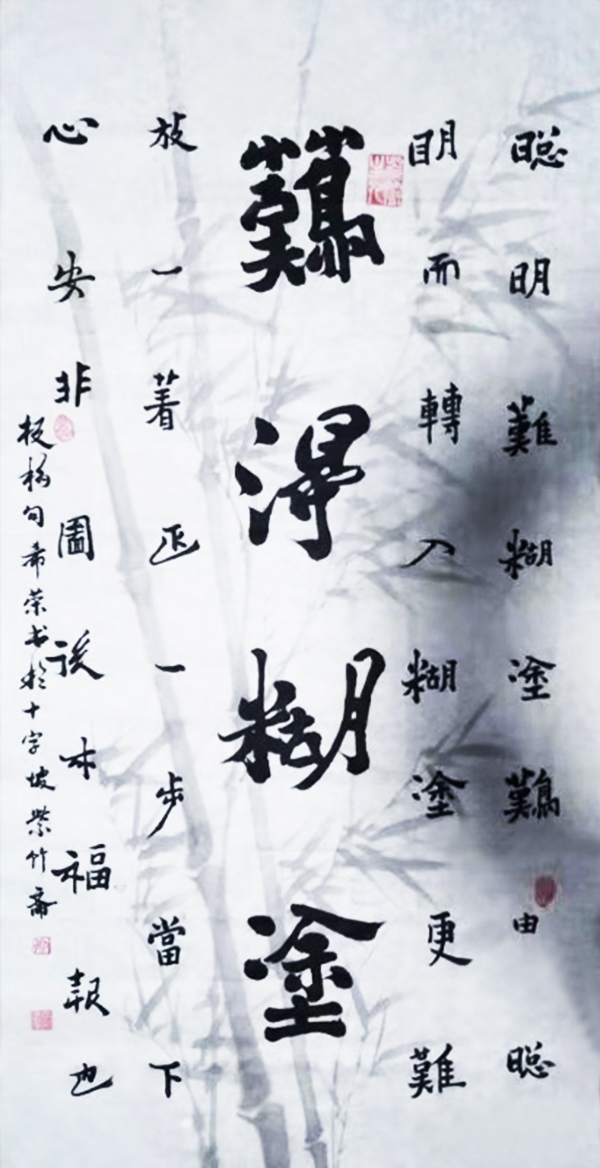 聰明難糊塗難由聰
明而轉入糊塗更難
難得糊塗
放一着退一步當下
心安非圖後来福報也
板橋句希荣书於十字坡紫竹齋